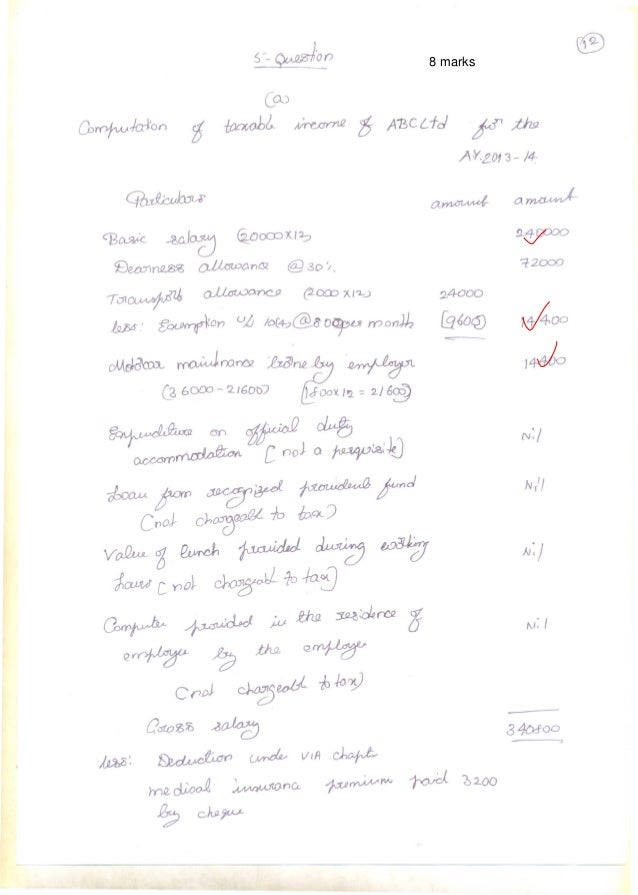 12
5 - Question 8 marks
(a)
Computation of taxable income of ABC Ltd for the
AY. 2013-14
Particulars amount amount
Basic salary (20000x12) 240000
Dearness allowance @ 30% 72000
Transport allowance (2000 x12) 24000
less: Exemption u/s 10(14) @ 800 per month (9600) 14400
Motorcar maintnance borne by employer 14400
(36000 - 21600) (1800x12 = 21600)
Expenditure on official duty
accommodation [not a perquisite) Nil
Loan from recognized provident fund Nil
(not chargeable to tax)
Value of lunch provided during working Nil
hours [not chargeable to tax)
Computer provided in the residence of Nil
employee by the employer
(not chargeable to tax)
Gross salary 340800
less: Deduction under VIA chapt
medical insurana premium paid 3200
by cheque